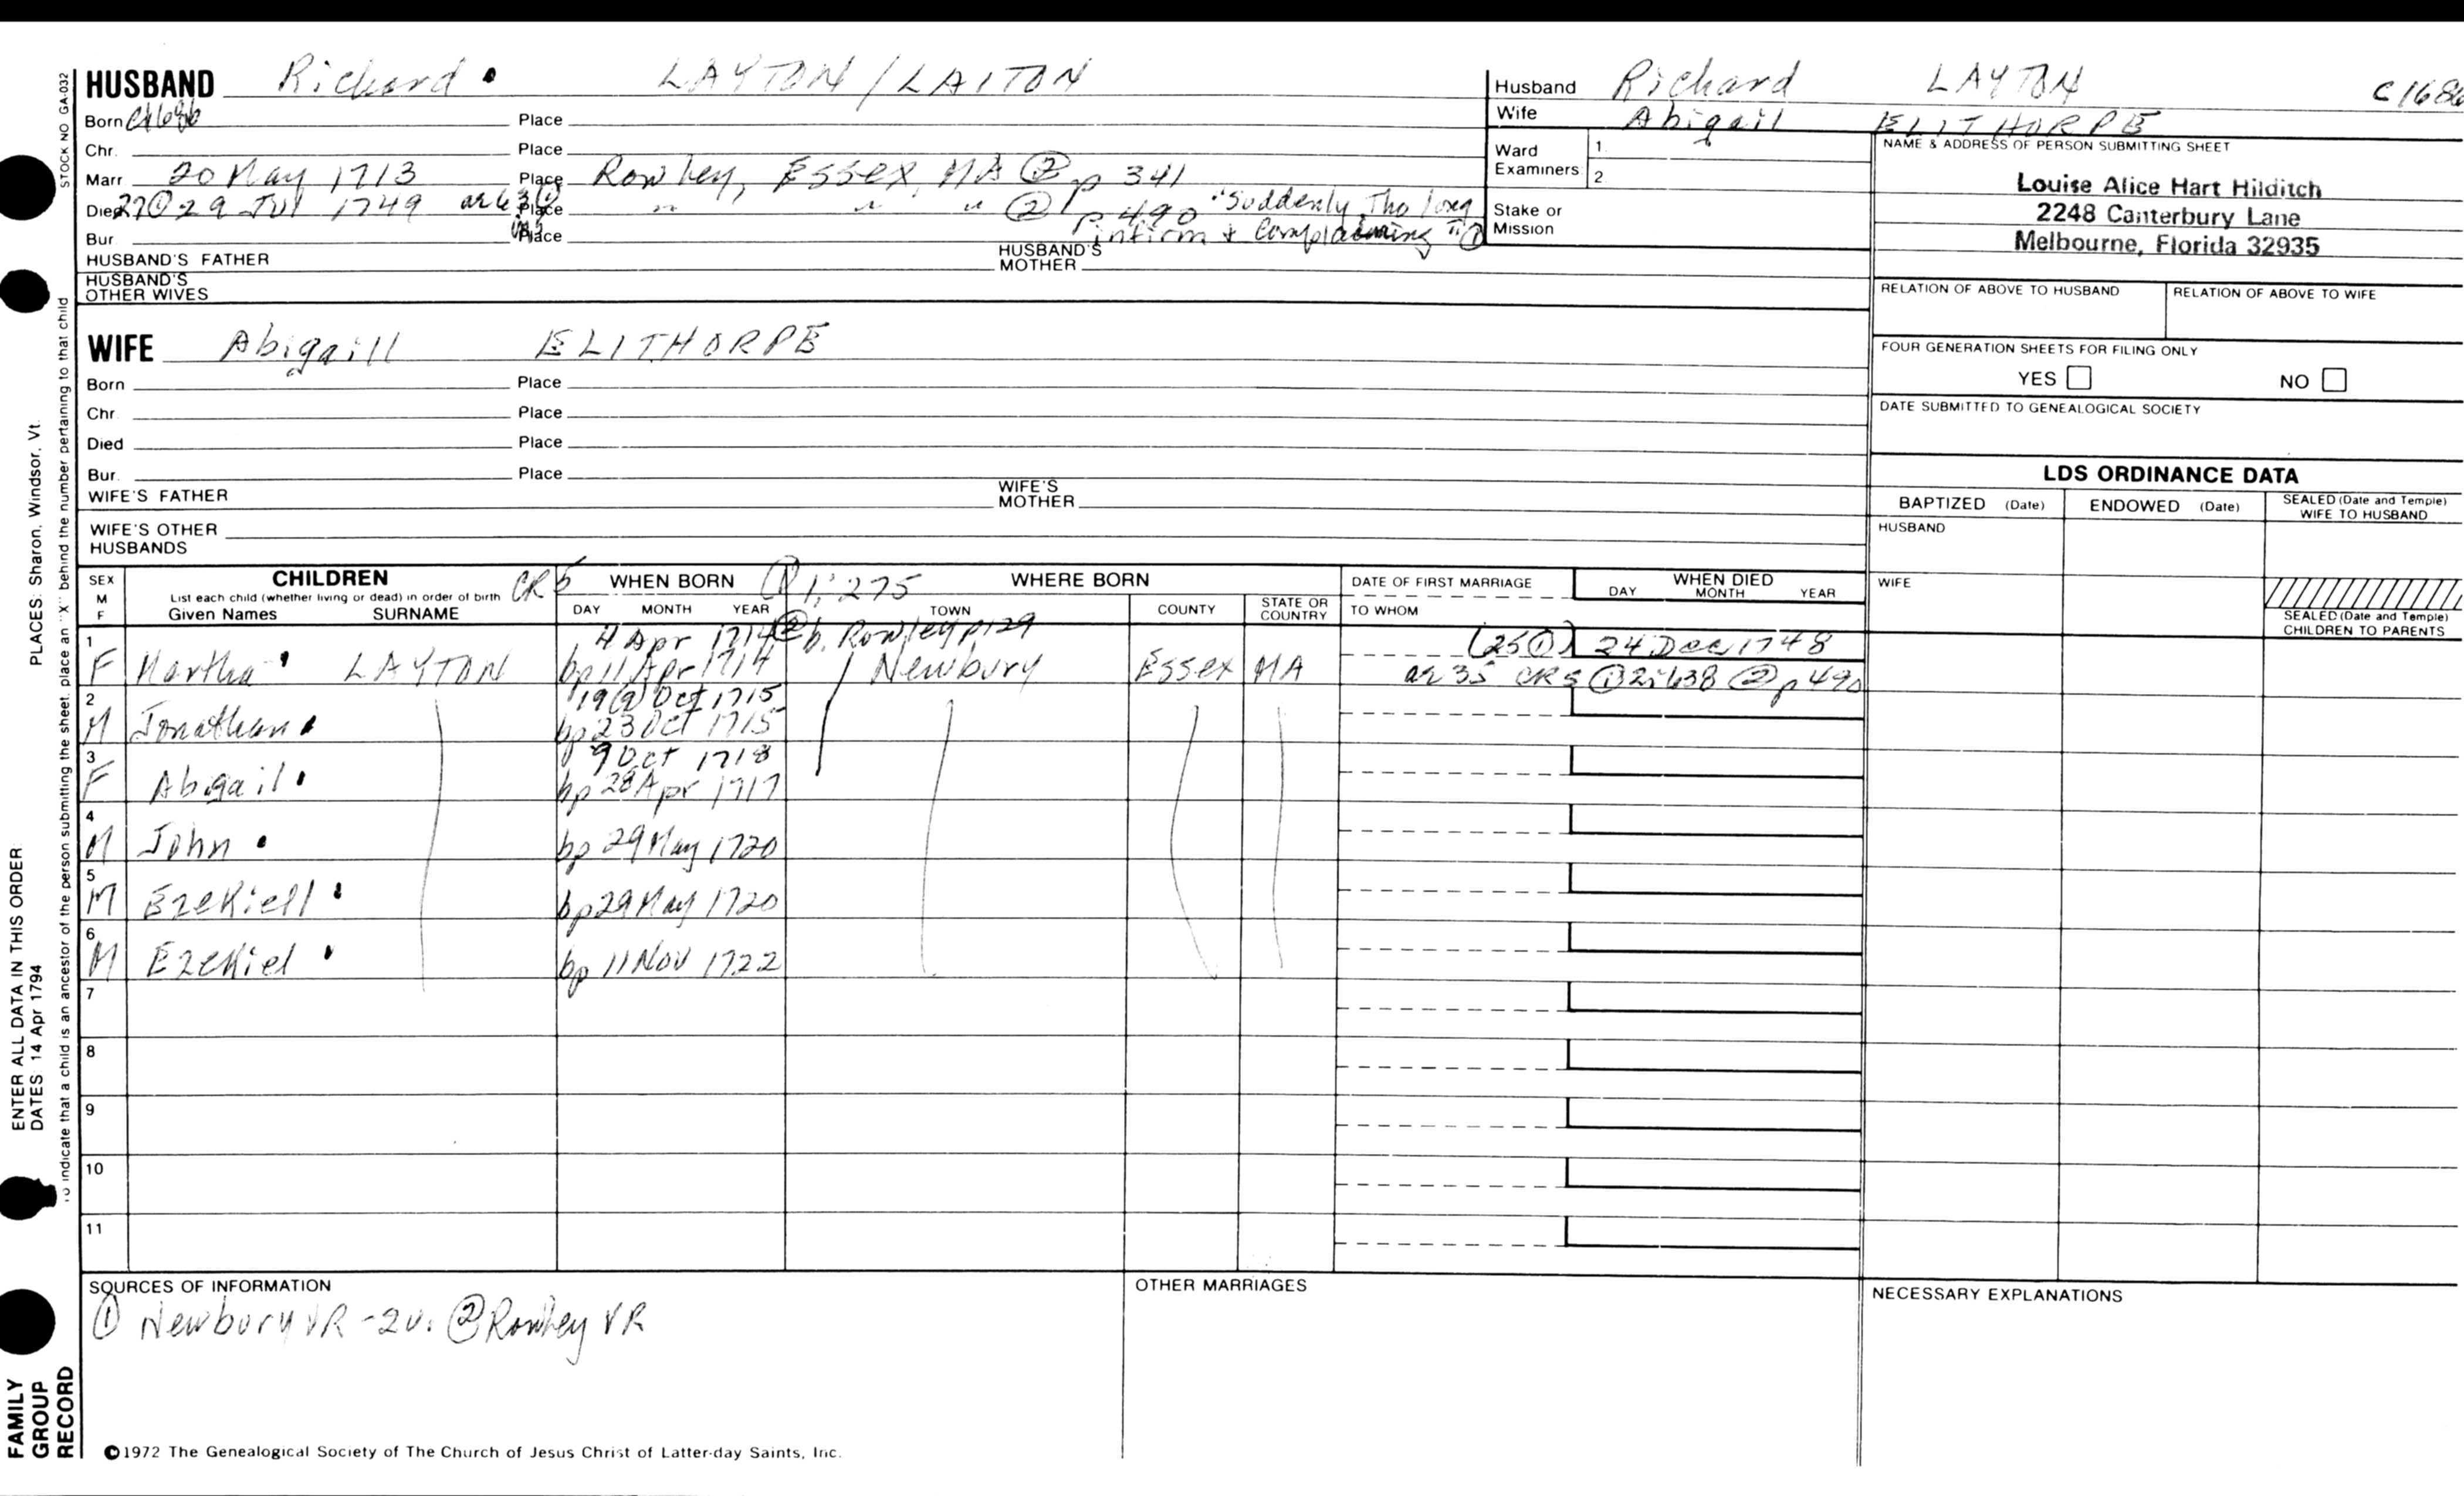 HUSBAND Richard • LAYTON/LAITON
Born C1686 Place
Chr. Place
Marr 20 May 1713 Place Rowley, Essex, MA ② p 341
Died 27① 29 Jul 1749 ae 63① Place " " " ② p 490 "Suddenly, Tho long
infirm & Complaining" ①
Bur. Place
HUSBAND'S FATHER HUSBAND'S MOTHER
HUSBAND'S OTHER WIVES
Husband Richard LAYTON C1686
Wife Abigail ELITHORPE
Ward Examiners 1. 2
Stake or Mission
NAME & ADDRESS OF PERSON SUBMITTING SHEET
Louise Alice Hart Hilditch
2248 Canterbury Lane
Melbourne, Florida 32935
RELATION OF ABOVE TO HUSBAND RELATION OF ABOVE TO WIFE
FOUR GENERATION SHEETS FOR FILING ONLY
YES NO
DATE SUBMITTED TO GENEALOGICAL SOCIETY
WIFE Abigaill ELITHORPE
Born Place
Chr. Place
Died Place
Bur. Place
WIFE'S FATHER WIFE'S MOTHER
WIFE'S OTHER HUSBANDS
LDS ORDINANCE DATA
BAPTIZED (Date) ENDOWED (Date) SEALED (Date and Temple) WIFE TO HUSBAND
HUSBAND
WIFE
SEALED (Date and Temple) CHILDREN TO PARENTS
SEX M F
CHILDREN CR5
List each child (whether living or dead) in order of birth
Given Names SURNAME
WHEN BORN ① 1:275
DAY MONTH YEAR
WHERE BORN
TOWN COUNTY STATE OR COUNTRY
DATE OF FIRST MARRIAGE
TO WHOM
WHEN DIED
DAY MONTH YEAR
1 4 Apr 1714 ② b. Rowley p129 (25①) 24 Dec 1748
F Martha • LAYTON bp 11 Apr 1714 Newbury Essex MA ae 35 CR5 ① 2:638 ② p 490
2 19② Oct 1715
M Jonathan • bp 23 Oct 1715
3 9 Oct 1718
F Abigail • bp 28 Apr 1717
4
M John • bp 29 May 1720
5
M Ezekiell • bp 29 May 1720
6
M Ezekiel • bp 11 Nov 1722
7
8
9
10
11
SOURCES OF INFORMATION
① Newbury VR - 2v. ② Rowley VR
OTHER MARRIAGES
NECESSARY EXPLANATIONS
©1972 The Genealogical Society of The Church of Jesus Christ of Latter-day Saints, Inc.
STOCK NO GA-032
To indicate that a child is an ancestor of the person submitting the sheet, place an "X" behind the number pertaining to that child
PLACES: Sharon, Windsor, Vt.
ENTER ALL DATA IN THIS ORDER
DATES: 14 Apr 1794
FAMILY
GROUP
RECORD